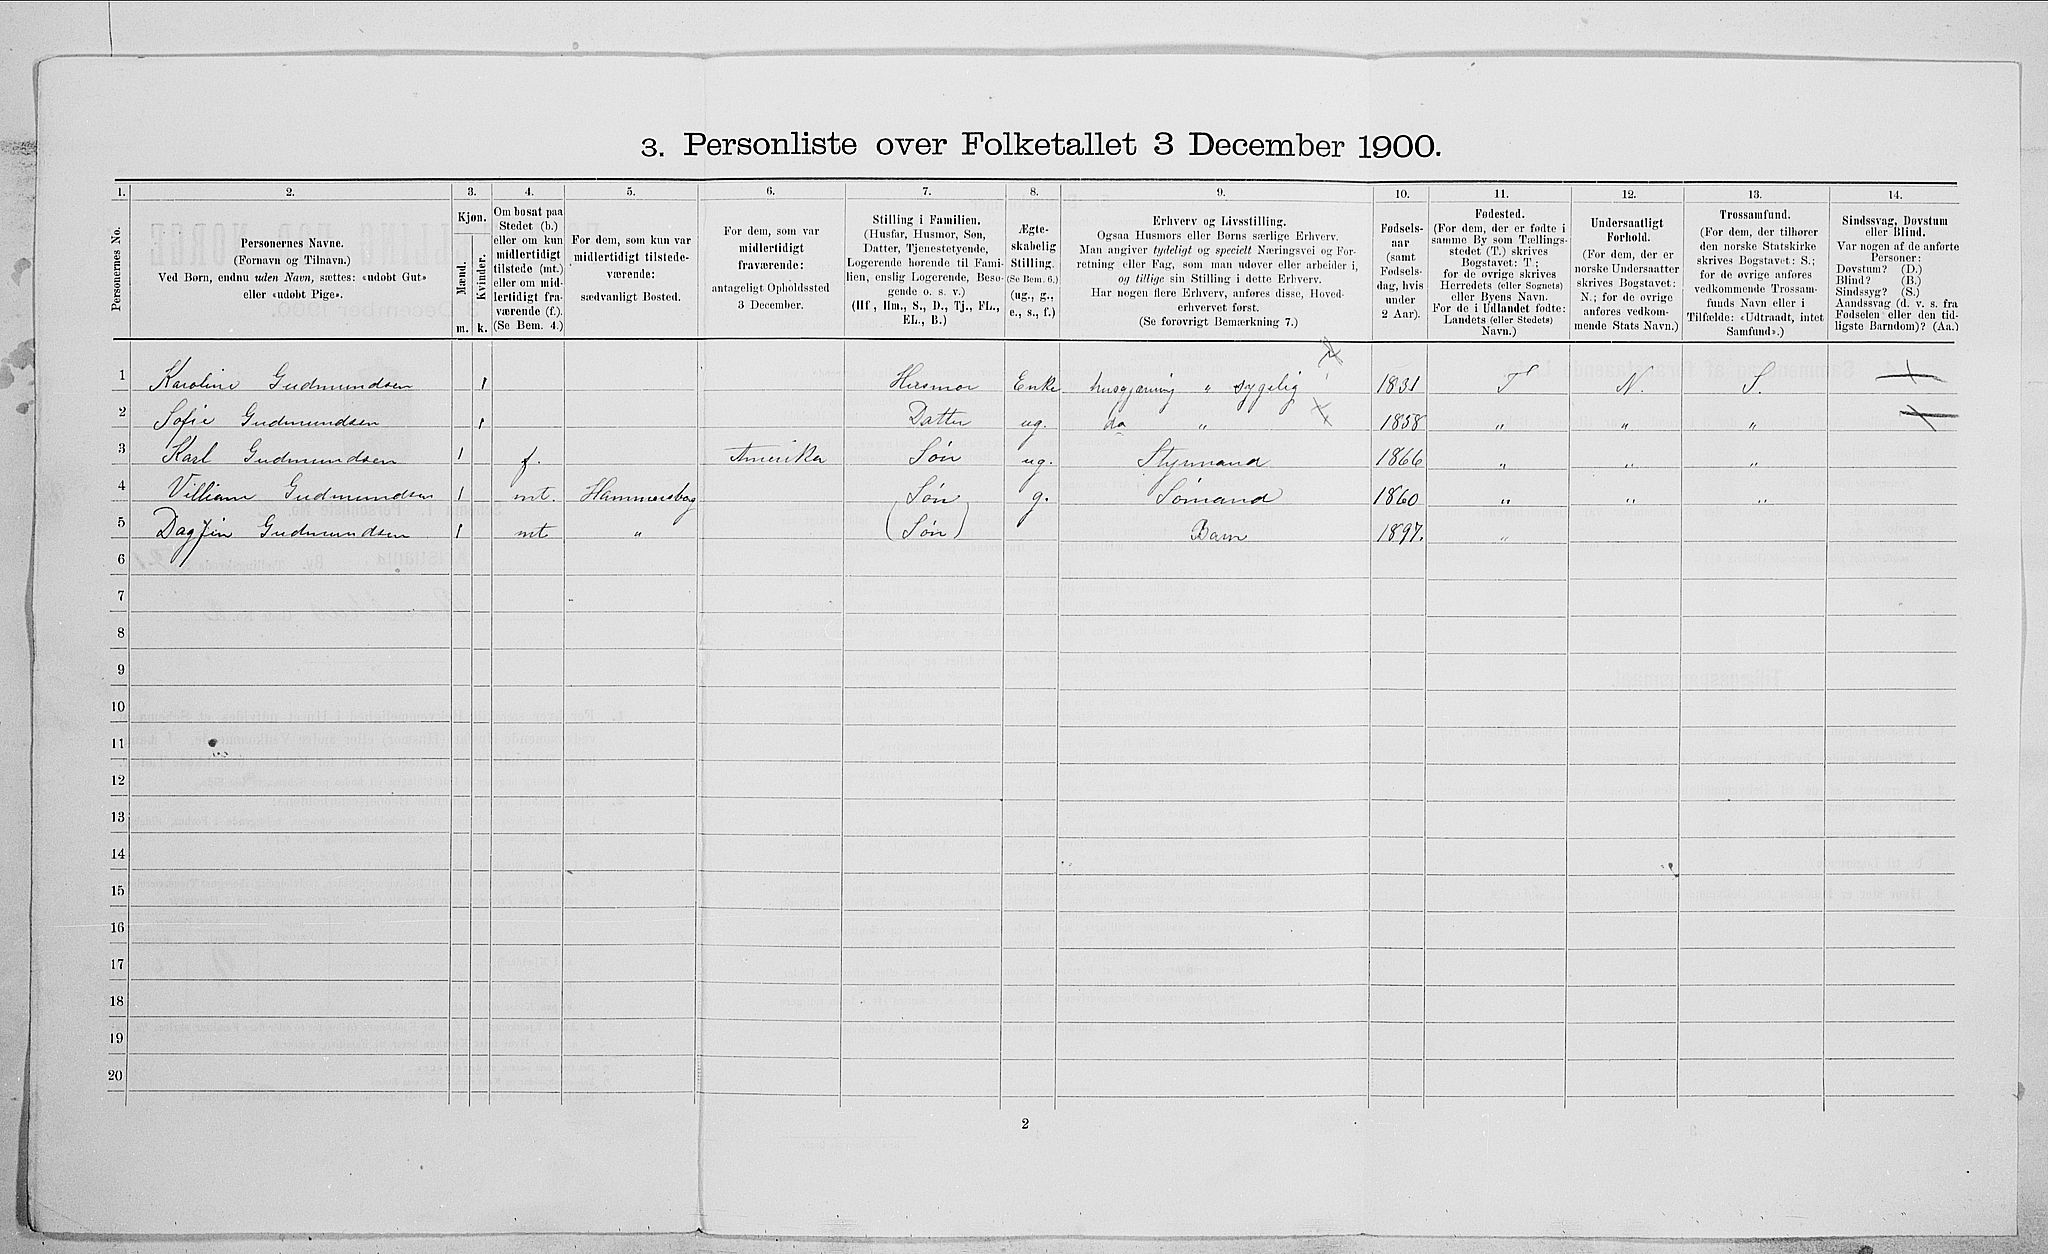 3. Personliste over Folketallet 3 December 1900.
1. 2. 3. 4. 5. 6. 7. 8. 9. 10. 11. 12. 13. 14.
Personernes No.
Personernes Navne.
(Fornavn og Tilnavn.)
Ved Børn, endnu uden Navn, sættes: «udøbt Gut»
eller «udøbt Pige».
Kjøn.
Mænd.
Kvinder.
m. k.
Om bosat paa
Stedet (b.)
eller om kun
midlertidigt
tilstede (mt.)
eller om mid-
lertidigt fra-
værende (f.)
(Se Bem. 4.)
For dem, som kun var
midlertidigt tilstede-
værende:
sædvanligt Bosted.
For dem, som var
midlertidigt
fraværende:
antageligt Opholdssted
3 December.
Stilling i Familien.
(Husfar, Husmor, Søn,
Datter, Tjenestetyende,
Logerende hørende til Fami-
lien, enslig Logerende, Besø-
gende o. s. v.)
(Hf, Hm., S., D., Tj., FL.,
EL., B.)
Ægte-
skabelig
Stilling.
(Se Bem. 6.)
(ug., g.,
e., s., f.)
Erhverv og Livsstilling.
Ogsaa Husmors eller Børns særlige Erhverv.
Man angiver tydeligt og specielt Næringsvei og For-
retning eller Fag, som man udøver eller arbeider i,
og tillige sin Stilling i dette Erhverv.
Har nogen flere Erhverv, anføres disse, Hoved-
erhvervet først.
(Se forøvrigt Bemærkning 7.)
Fødsels-
aar
(samt
Fødsels-
dag, hvis
under
2 Aar).
Fødested.
(For dem, der er fødte i
samme By som Tællings-
stedet (T.) skrives
Bogstavet: T.;
for de øvrige skrives
Herredets (eller Sognets)
eller Byens Navn.
For de i Udlandet fødte:
Landets (eller Stedets)
Navn.)
Undersaatligt
Forhold.
(For dem, der er
norske Undersaatter
skrives Bogstavet:
N.; for de øvrige
anføres vedkom-
mende Stats Navn.)
Trossamfund.
(For dem, der tilhører
den norske Statskirke
skrives Bogstavet: S.;
for de øvrige anføres
vedkommende Trossam-
funds Navn eller i
Tilfælde: «Udtraadt, intet
Samfund».)
Sindssvag, Døvstum
eller Blind.
Var nogen af de anførte
Personer:
Døvstum? (D.)
Blind? (B.)
Sindssyg? (S.)
Aandssvag (d. v. s. fra
Fødselen eller den tid-
ligste Barndom)? (Aa.)
1 Karoline Gudmundsen 1 Husmor Enke husgjerning " sygelig 1831 T N. S.
2 Sofie Gudmundsen 1 Datter ug. do " 1858 " " "
3 Karl Gudmundsen 1 f. Amerika Søn ug. Styrmand 1866 " " "
4 Villiam Gudmundsen 1 mt. Hammersborg Søn g. Sømand 1860 " " "
5 Dagfin Gudmundsen 1 mt " (Søn) Barn 1897. "
6
7
8
9
10
11
12
13
14
15
16
17
18
19
20
2